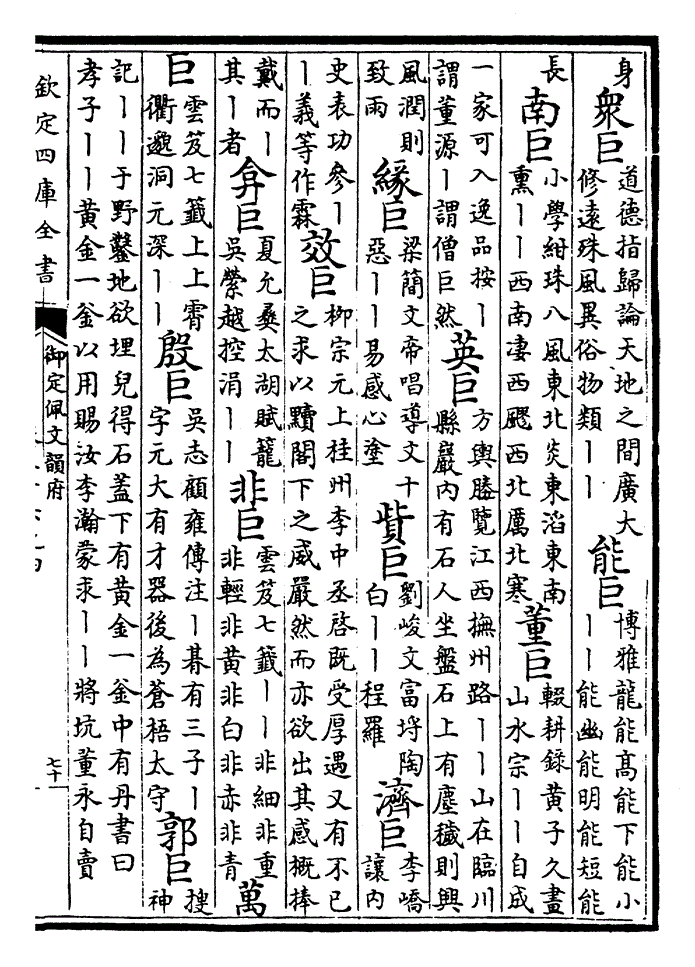 身
衆巨
道德指歸論天地之間廣大
修遠殊風異俗物類丨丨
能巨
博雅龍能髙能下能小
丨丨能幽能明能短能
長
南巨
小學紺珠八風東北炎東滔東南
熏丨丨西南凄西飈西北厲北寒
董巨
輟耕錄黄子久畫
山水宗丨丨自成
一家可入逸品按丨
謂董源丨謂僧巨然
英巨
方輿勝覽江西撫州路丨丨山在臨川
縣巖内有石人坐盤石上有塵穢則興
風潤則
致雨
緣巨
梁簡文帝唱導文十
惡丨丨易感心塗
貲巨
劉峻文富埒陶
白丨丨程羅
濟巨
李嶠
讓内
史表功參丨
丨義等作霖
效巨
柳宗元上桂州李中丞啓既受厚遇又有不已
之求以黷閣下之威嚴然而亦欲出其感概捧
戴而丨
其丨者
弇巨
夏允彝太湖賦籠
吳縈越控涓丨丨
非巨
雲笈七籤丨丨非細非重
非輕非黄非白非赤非青
萬
巨
雲笈七籤上上霄
衢邈洞元深丨丨
殷巨
吳志顧雍傳注丨碁有三子丨
字元大有才器後為蒼梧太守
郭巨
搜
神
記丨丨于野鑿地欲埋兒得石蓋下有黄金一釜中有丹書曰
孝子丨丨黄金一釜以用賜汝李瀚蒙求丨丨將坑董永自賣
欽定四庫全書
御定佩文韻府
七十一